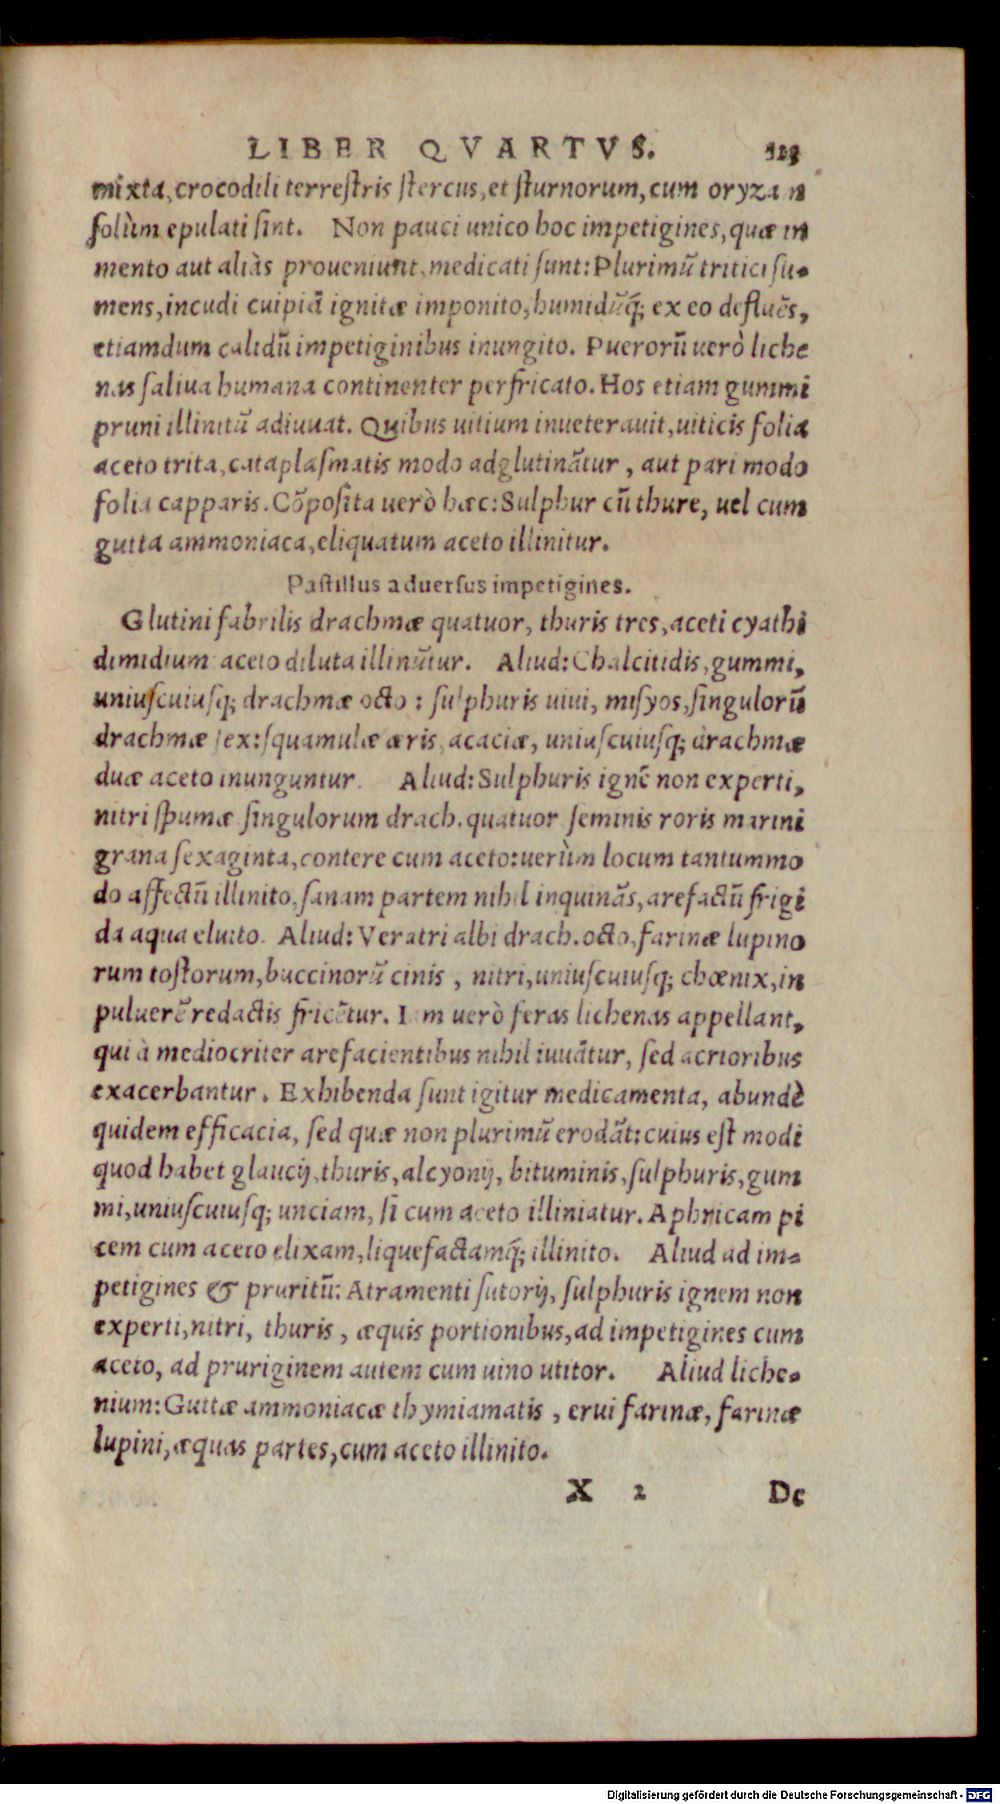 LIBER QVARTVS. 323
mixta, crocodili terrestris stercus, et sturnorum, cum oryzam
solùm epulati sint. Non pauci unico hoc impetigines, quæ in
mento aut aliàs proueniunt, medicati sunt: Plurimũ tritici su-
mens, incudi cuipiã ignitæ imponito, humidũq́; ex eo defluẽs,
etiamdum calidũ impetiginibus inungito. Puerorũ uerò liche
nas saliua humana continenter perfricato. Hos etiam gummi
pruni illinitũ adiuuat. Quibus uitium inueterauit, uiticis folia
aceto trita, cataplasmatis modo adglutinãtur, aut pari modo
folia capparis. Cõposita uerò hæc: Sulphur cũ thure, uel cum
gutta ammoniaca, eliquatum aceto illinitur.
Pastillus aduersus impetigines.
Glutini fabrilis drachmæ quatuor, thuris tres, aceti cyathi
dimidium aceto diluta illinũtur. Aliud: Chalcitidis, gummi,
uniuscuiusq; drachmæ octo: sulphuris uiui, misyos, singulorũ
drachmæ sex: squamulæ æris, acaciæ, uniuscuiusq; drachmæ
duæ aceto inunguntur. Aliud: Sulphuris ignẽ non experti,
nitri spumæ singulorum drach. quatuor seminis roris marini
grana sexaginta, contere cum aceto: uerùm locum tantummo
do affectũ illinito, sanam partem nihil inquinãs, arefactũ frigi
da aqua eluito. Aliud: Veratri albi drach. octo, farinæ lupino
rum tostorum, buccinorũ cinis, nitri, uniuscuiusq; chœnix, in
puluerẽ redactis fricẽtur. Iam uerò feras lichenas appellant,
qui à mediocriter arefacientibus nihil iuuãtur, sed acrioribus
exacerbantur. Exhibenda sunt igitur medicamenta, abundè
quidem efficacia, sed quæ non plurimũ erodãt: cuius est modi
quod habet glaucij, thuris, alcyonij, bituminis, sulphuris, gum
mi, uniuscuiusq; unciam, si cum aceto illiniatur. Aphricam pi
cem cum aceto elixam, liquefactamq́; illinito. Aliud ad im-
petigines & pruritũ: Atramenti sutorij, sulphuris ignem non
experti, nitri, thuris, æquis portionibus, ad impetigines cum
aceto, ad pruriginem autem cum uino utitor. Aliud liche-
nium: Guttæ ammoniacæ thymiamatis, erui farinæ, farinæ
lupini, æquas partes, cum aceto illinito.
X 2 De
Digitalisierung gefördert durch die Deutsche Forschungsgemeinschaft - DFG